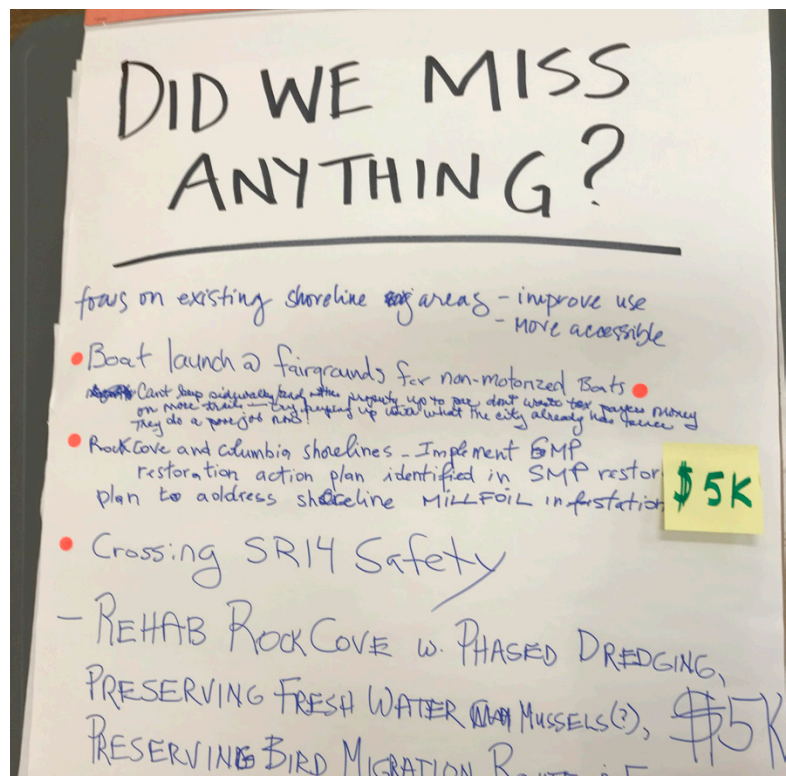 DID WE MISS
ANYTHING?
focus on existing shoreline areas - improve use
- More accessible
Boat launch @ fairgrounds for non-motorized Boats
Can't keep and other property up to par, don't want tax payers money
on more trails - try keeping up with what the city already has
They do a poor job now!
Rock Cove and Columbia shorelines - Implement SMP
restoration action plan identified in SMP restor
plan to address shoreline MILLFOIL infestation
$5K
Crossing SR14 Safety
- REHAB ROCK COVE w. PHASED DREDGING,
PRESERVING FRESH WATER MUSSELS(?), $5K
PRESERVING BIRD MIGRATION